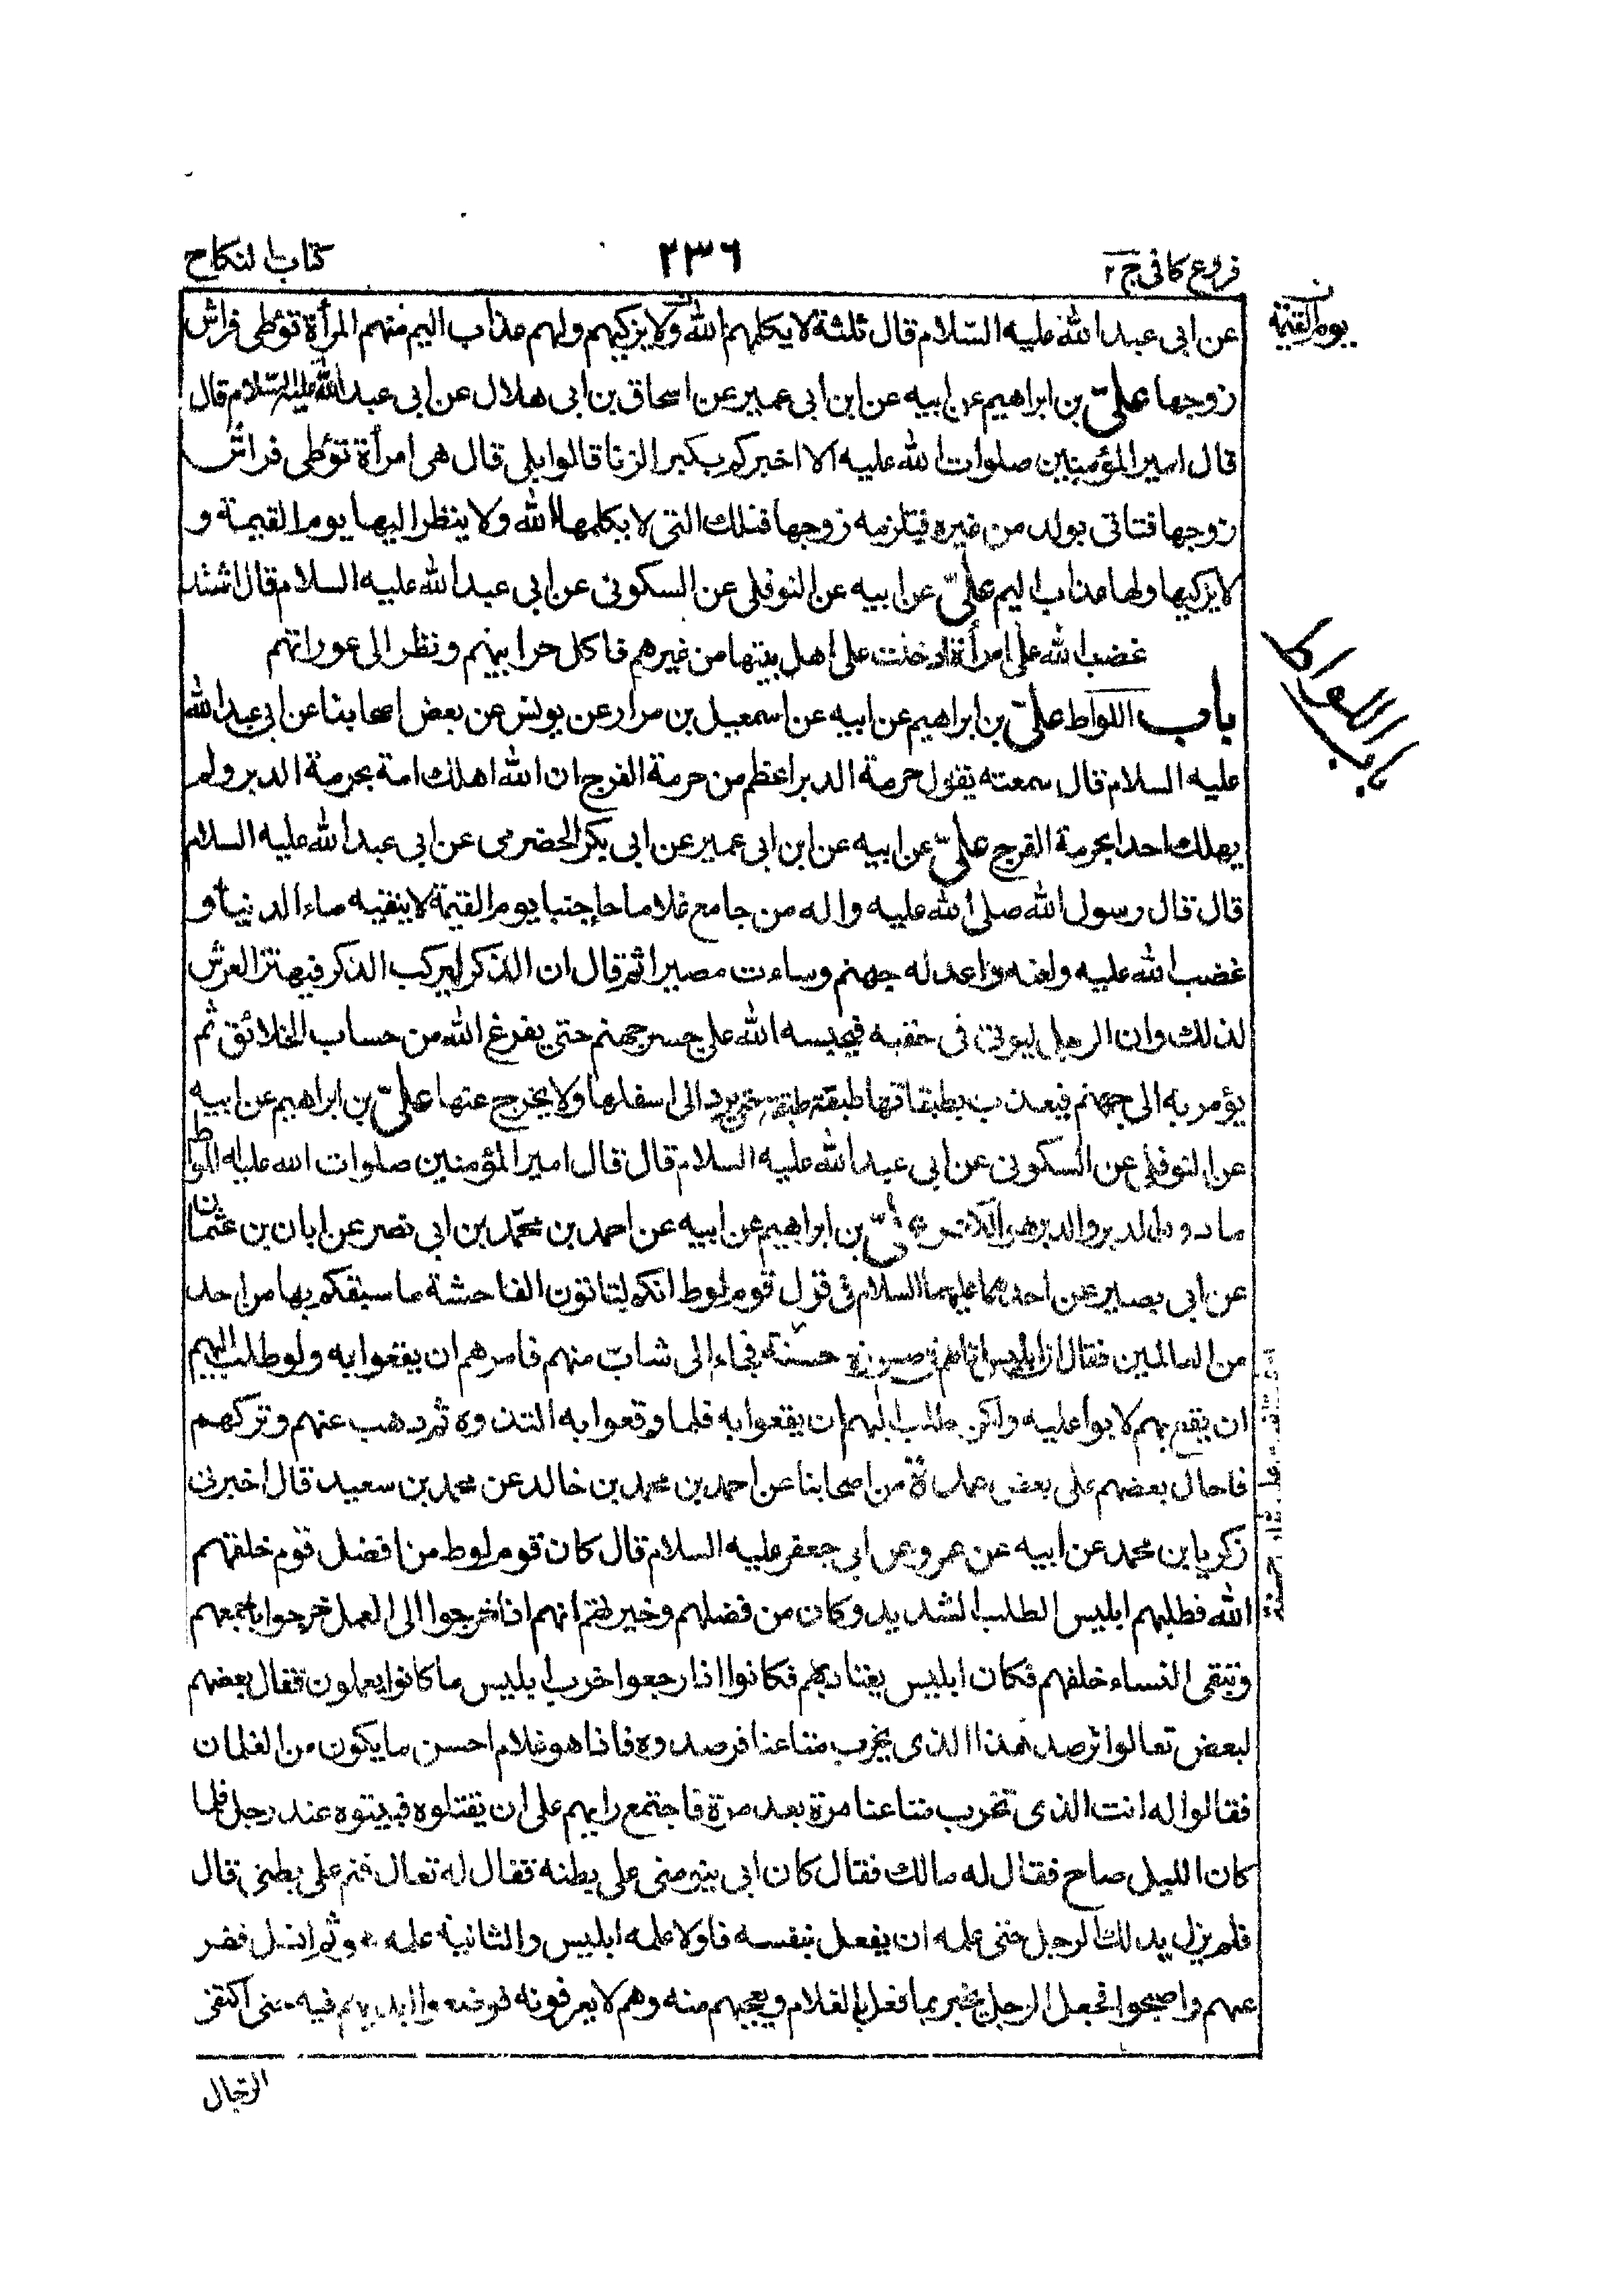 فروع كافى ج ٢
٢٣٦
كتاب النكاح
يوم القيمة
عن ابى عبد الله عليه السّلام قال ثلثة لا يكلمهم الله ولا يزكيهم ولهم عذاب اليم منهم المرأة توُطى فراش
زوجها علىّ بن ابراهيم عن ابيه عن ابن ابى عمير عن اسحاق بن ابى هلال عن ابى عبد الله عليه السّلام قال
قال امير المؤمنين صلوات الله عليه الا اخبركم بكبر الزنا قالوا بلى قال هى امرأة توُطى فراش
زوجها فتاتى بولد من غيره فيلزمه زوجها فتلك التى لا يكلمها الله ولا ينظر اليها يوم القيمة و
لا يزكيها ولها عذاب اليم علىّ عن ابيه عن النوفلى عن السكونى عن ابى عبد الله عليه السلام قال اشتد
غضب الله على امرأة ادخلت على اهل بيتها من غيرهم فاكل حرابيهم ونظر الى عوراتهم
باب اللواط
باب اللواط علىّ بن ابراهيم عن ابيه عن اسمعيل بن مرار عن يونس عن بعض اصحابنا عن ابى عبد الله
عليه السلام قال سمعته يقول حرمة الدبر اعظم من حرمة الفرج ان الله اهلك امة بحرمة الدبر ولم
يهلك احدا بحرمة الفرج علىّ عن ابيه عن ابن ابى عمير عن ابى بكر الحضرمى عن ابى عبد الله عليه السلام
قال قال رسول الله صلى الله عليه واله من جامع غلاما جاء جنبا يوم القيمة لا ينقيه ماء الدنيا و
غضب الله عليه ولعنه واعد له جهنم وساءت مصيرا ثم قال ان الذكر ليركب الذكر فيهتز العرش
لذلك وان الرجل ليوتى فى حقبه فيحبسه الله على جسر جهنم حتى يفرغ الله من حساب الخلائق ثم
يؤمر به الى جهنم فيعذب بطبقاتها طبقة طبقة حتى يرد الى اسفلها ولا يخرج عنها علىّ بن ابراهيم عن ابيه
عن النوفلى عن السكونى عن ابى عبد الله عليه السلام قال قال امير المؤمنين صلوات الله عليه اللواط
ما دون الدبر والدبر هو الكفر علىّ بن ابراهيم عن ابيه عن احمد بن محمّد بن ابى نصر عن ابان بن عثمان
عن ابى بصير عن احدهما عليهما السلام فى قول قوم لوط انكم لتاتون الفاحشة ما سبقكم بها من احد
من العالمين فقال ان ابليس اتاهم فى صورة حسنة فجاء الى شابّ منهم فامرهم ان يقعوا به ولو طلب اليهم
ان يقع بهم لابوا عليه ولكن طلب اليهم ان يقعوا به فلما وقعوا به التذوه ثم ذهب عنهم وتركهم
فاحال بعضهم على بعض عدة من اصحابنا عن احمد بن محمد بن خالد عن محمد بن سعيد قال اخبرنى
زكريا بن محمد عن ابيه عن عمرو عن ابى جعفر عليه السلام قال كان قوم لوط من افضل قوم خلقهم
الله فطلبهم ابليس الطلب الشديد وكان من فضلهم وخيرتهم انهم اذا خرجوا الى العمل خرجوا باجمعهم
وتبقى النساء خلفهم فكان ابليس يعتادهم فكانوا اذا رجعوا خرب ابليس ما كانوا يعملون فقال بعضهم
لبعض تعالوا نرصد هذا الذى يخرب متاعنا فرصدوه فاذا هو غلام احسن ما يكون من الغلمان
فقالوا له انت الذى تخرب متاعنا مرة بعد مرة فاجتمع رايهم على ان يقتلوه فبيتوه عند رجل فلما
كان الليل صاح فقال له مالك فقال كان ابى ينومنى على بطنه فقال له تعال فنم على بطنى قال
فلم يزل يدلك الرجل حتى علمه ان يفعل بنفسه فاولا علمه ابليس والثانية علمه هو ثم انسل ففر
عنهم واصبحوا فجعل الرجل يخبر بما فعل بالغلام ويعجبهم منه وهم لا يعرفونه فوضعوا ايديهم فيه حتى اكتفى
الرجال